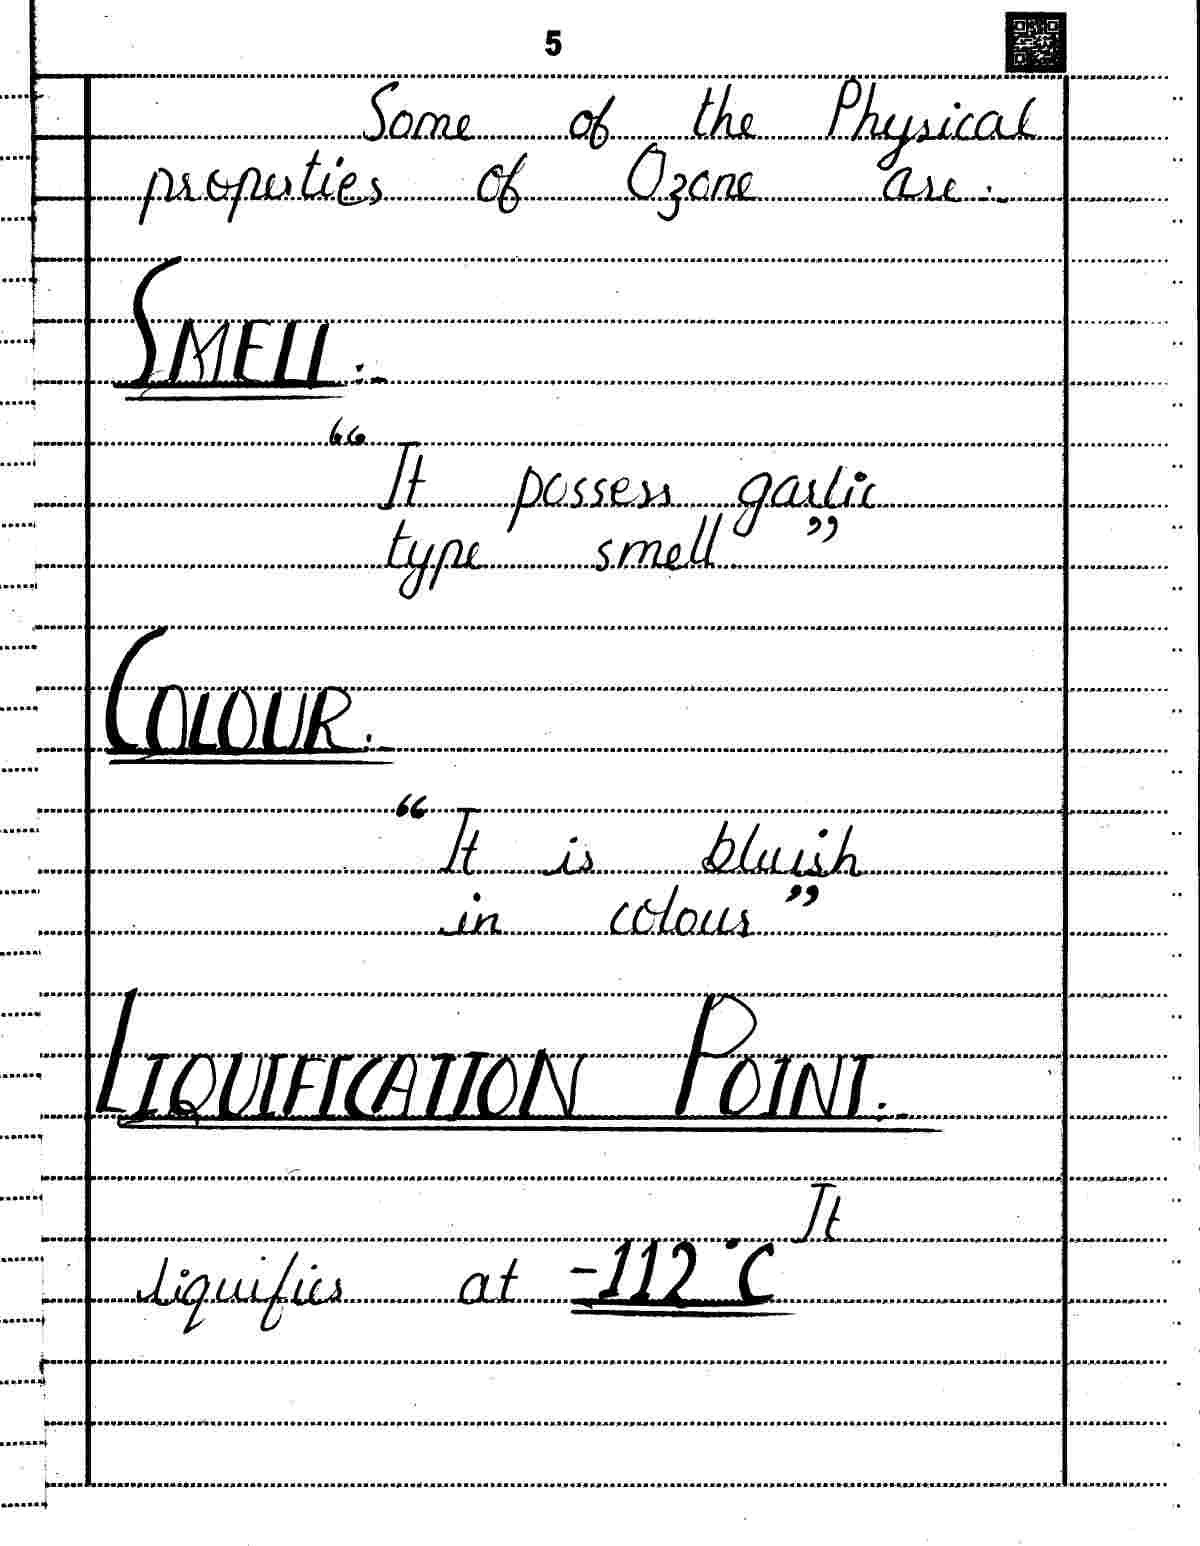 5
Some of the Physical
properties of Ozone are:-
SMELL:-
“It possess garlic
type smell”
COLOUR:-
“It is bluish
in colour”
LIQUIFICATION POINT:-
It
liquifies at -112°C